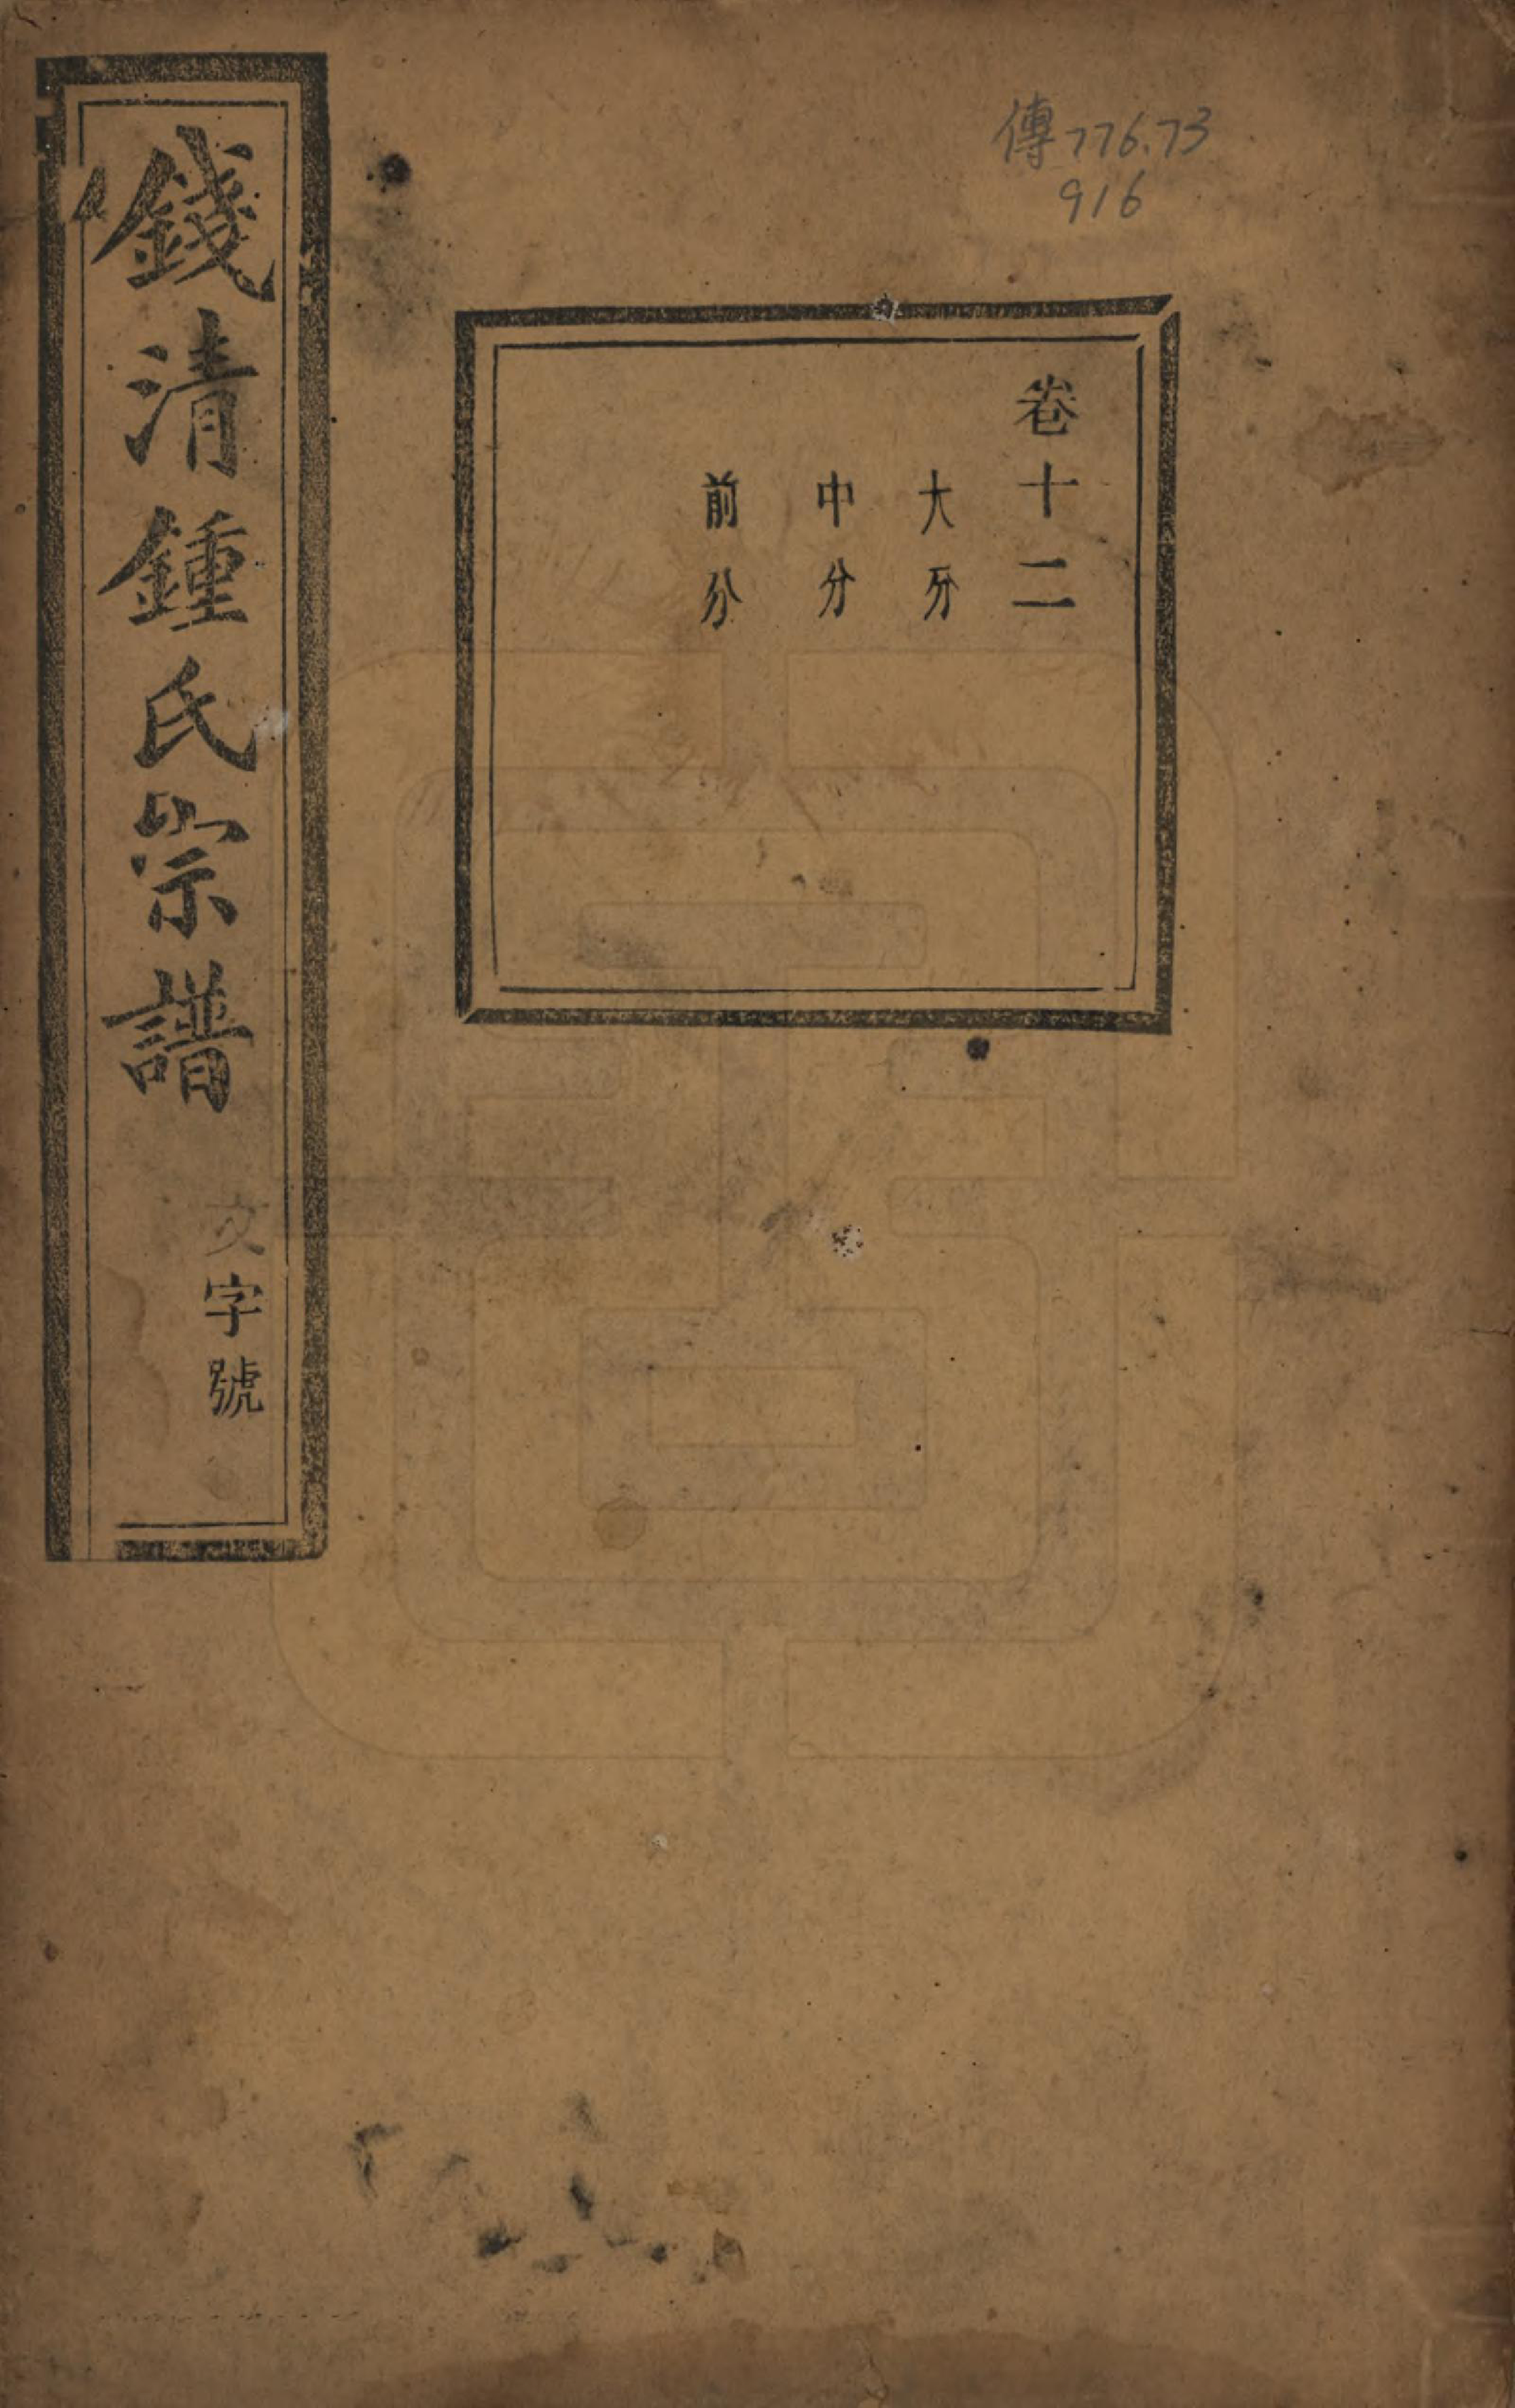 傳776.73
916
卷十二
大分
中分
前分
錢清鍾氏宗譜
文字號